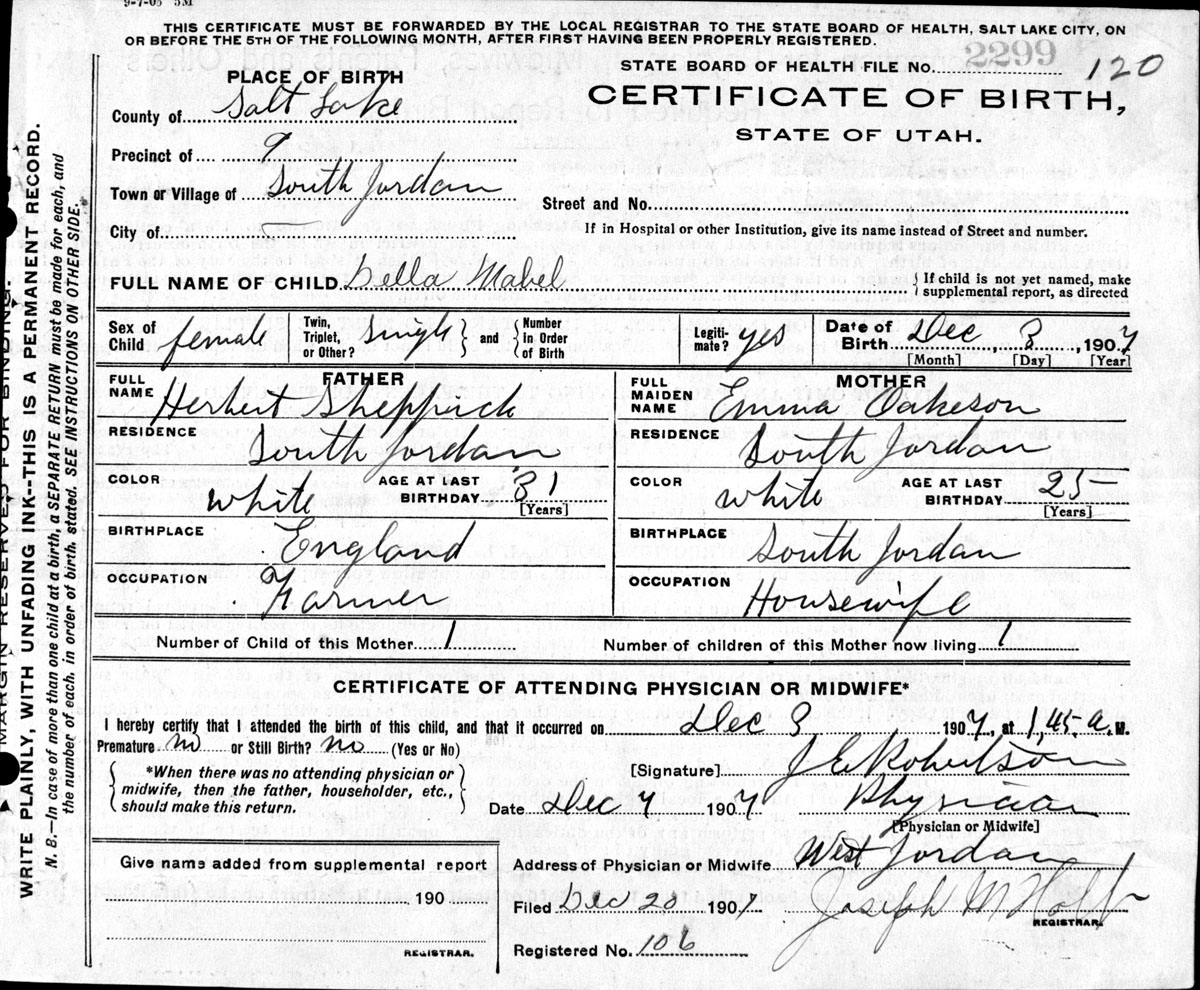 9-7-05 5M
THIS CERTIFICATE MUST BE FORWARDED BY THE LOCAL REGISTRAR TO THE STATE BOARD OF HEALTH, SALT LAKE CITY, ON
OR BEFORE THE 5TH OF THE FOLLOWING MONTH, AFTER FIRST HAVING BEEN PROPERLY REGISTERED.
STATE BOARD OF HEALTH FILE No. 2299 120
CERTIFICATE OF BIRTH,
STATE OF UTAH.
PLACE OF BIRTH
County of Salt Lake
Precinct of 9
Town or Village of South Jordan
Street and No.
City of
If in Hospital or other Institution, give its name instead of Street and number.
FULL NAME OF CHILD Della Mabel
{ If child is not yet named, make
supplemental report, as directed
Sex of Child female
Twin, Triplet, or Other? single } and { Number In Order of Birth
Legiti-mate? yes
Date of Birth Dec 3, 1907
[Month] [Day] [Year]
FATHER
FULL NAME Herbert Sheppick
RESIDENCE South Jordan
COLOR white AGE AT LAST BIRTHDAY 31 [Years]
BIRTHPLACE England
OCCUPATION Farmer
MOTHER
FULL MAIDEN NAME Emma Oakeson
RESIDENCE South Jordan
COLOR white AGE AT LAST BIRTHDAY 25 [Years]
BIRTHPLACE South Jordan
OCCUPATION Housewife
Number of Child of this Mother 1 Number of children of this Mother now living 1
CERTIFICATE OF ATTENDING PHYSICIAN OR MIDWIFE*
I hereby certify that I attended the birth of this child, and that it occurred on Dec 3 1907, at 1,45 a M.
Premature no or Still Birth? no (Yes or No)
{ *When there was no attending physician or
midwife, then the father, householder, etc.,
should make this return. }
[Signature] J E Robertson
Date Dec 4 1907 Physician
[Physician or Midwife]
Give name added from supplemental report
190
REGISTRAR.
Address of Physician or Midwife West Jordan
Filed Dec 20 1907 Joseph M Holt
REGISTRAR.
Registered No. 106
MARGIN RESERVED FOR BINDING.
WRITE PLAINLY, WITH UNFADING INK--THIS IS A PERMANENT RECORD.
N. B.—In case of more than one child at a birth, a SEPARATE RETURN must be made for each, and
the number of each, in order of birth, stated. SEE INSTRUCTIONS ON OTHER SIDE.